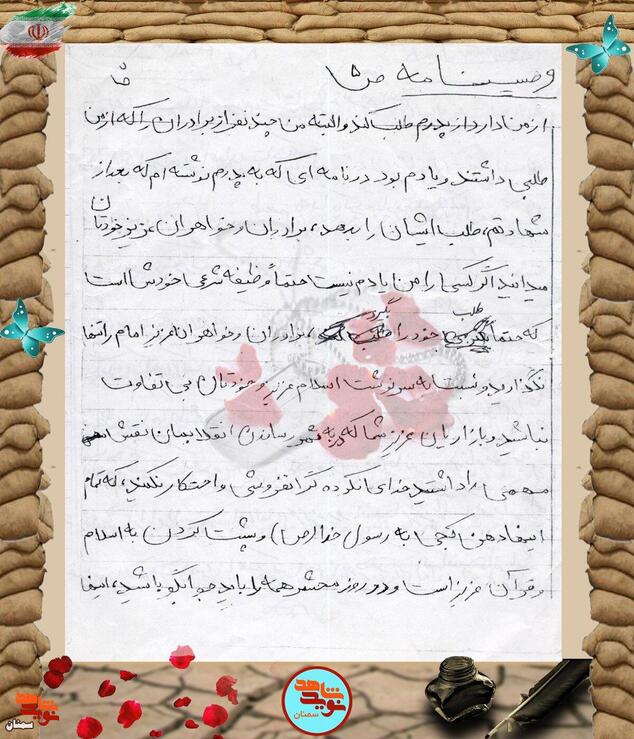 وصیتنامه ص ۵
از من دارد از پدرم طلب کند والبته من چند نفر از برادران را که از من
طلبی داشتند و یادم بود در نامه ای که به پدرم نوشته ام که بعد از
شهادتم، طلب ایشان را بدهد، برادران و خواهران عزیز خودتان
میدانید اگر کسی را من یادم نیست حتماً وظیفه شرعی خودش است
که حتماً طلب خود را بگیرد، برادران و خواهران عزیز امام را تنها
نگذارید و نسبت به سرنوشت اسلام عزیز و خودتان بی تفاوت
نباشید و بازاریان عزیز شما که در به ثمر رساندن انقلابمان نقش
مهمی را داشتید خدای نکرده گرانفروشی و احتکار نکنید، که تمام
اینها دهن کجی به رسول خدا (ص) و پشت کردن به اسلام
و قرآن عزیز است و در روز محشر همه را باید جوابگو باشید، اینها
نوید شاهد
سمنان
نوید شاهد
سمنان